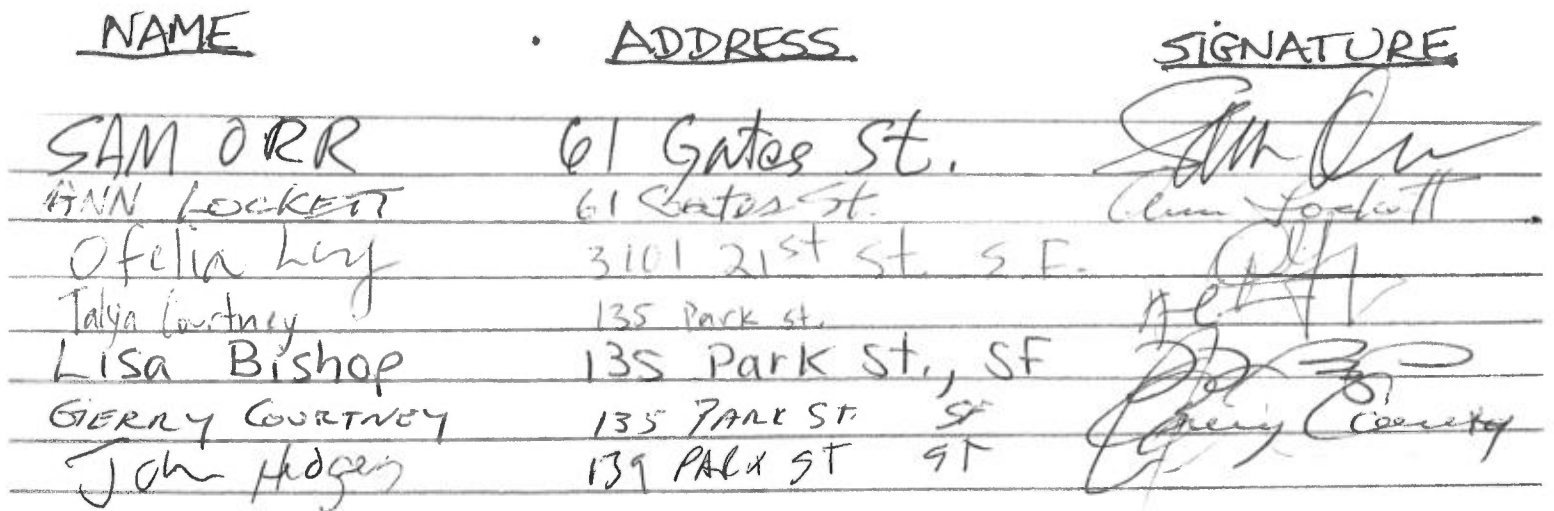 NAME ADDRESS SIGNATURE
SAM ORR 61 Gates St. Sam Orr
ANN LOCKETT 61 Gates St. Ann Lockett
Ofelia 3101 21st St. S.F.
Talya Courtney 135 Park st.
Lisa Bishop 135 Park St., SF
GERRY COURTNEY 135 PARK ST. SF
John Hodges 139 PARK ST